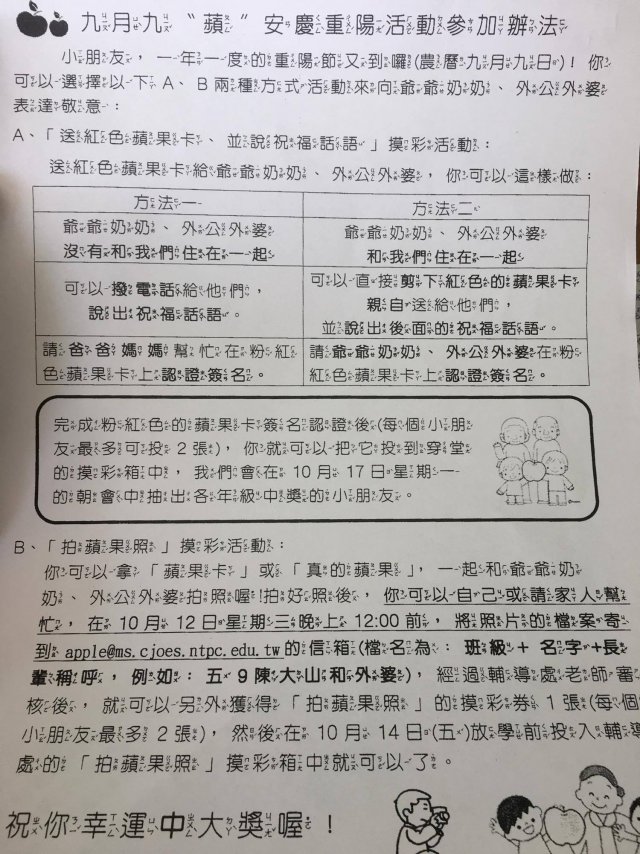 九月九“蘋”安慶重陽活動參加辦法
小朋友，一年一度的重陽節又到囉(農曆九月九日)！你
可以選擇以下A、B兩種方式活動來向爺爺奶奶、外公外婆
表達敬意：
A、「送紅色蘋果卡、並說祝福話語」摸彩活動：
送紅色蘋果卡給爺爺奶奶、外公外婆，你可以這樣做：
方法一
方法二
爺爺奶奶、外公外婆
沒有和我們住在一起
爺爺奶奶、外公外婆
和我們住在一起
可以撥電話給他們，
說出祝福話語。
可以直接剪下紅色的蘋果卡
親自送給他們，
並說出後面的祝福話語。
請爸爸媽媽幫忙在粉紅
色蘋果卡上認證簽名。
請爺爺奶奶、外公外婆在粉
紅色蘋果卡上認證簽名。
完成粉紅色的蘋果卡簽名認證後(每個小朋
友最多可投2張)，你就可以把它投到穿堂
的摸彩箱中，我們會在10月17日星期一
的朝會中抽出各年級中獎的小朋友。
B、「拍蘋果照」摸彩活動：
你可以拿「蘋果卡」或「真的蘋果」，一起和爺爺奶
奶、外公外婆拍照喔!拍好照後，你可以自己或請家人幫
忙，在10月12日星期三晚上12:00前，將照片的檔案寄
到apple@ms.cjoes.ntpc.edu.tw的信箱(檔名為：班級+名字+長
輩稱呼，例如：五9陳大山和外婆)，經過輔導處老師審
核後，就可以另外獲得「拍蘋果照」的摸彩券1張(每個
小朋友最多2張)，然後在10月14日(五)放學前投入輔導
處的「拍蘋果照」摸彩箱中就可以了。
祝你幸運中大獎喔！